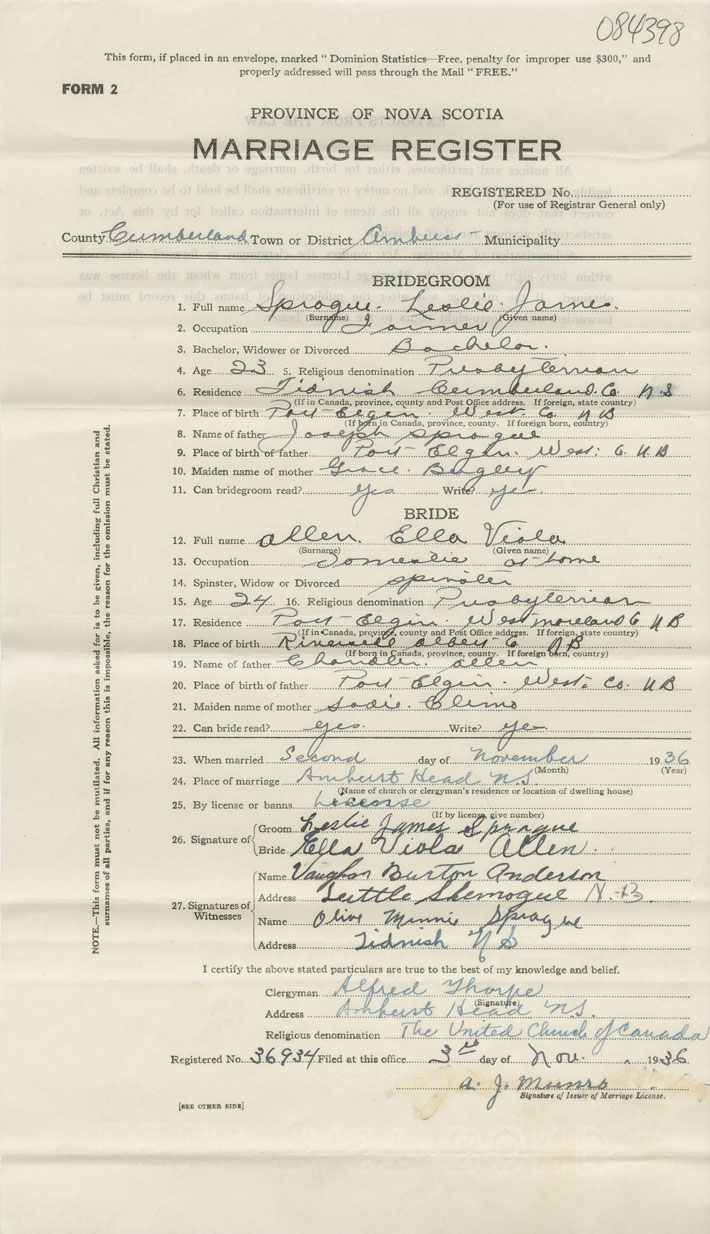 084398
This form, if placed in an envelope, marked "Dominion Statistics—Free, penalty for improper use $300," and
properly addressed will pass through the Mail "FREE."
FORM 2
PROVINCE OF NOVA SCOTIA
MARRIAGE REGISTER
REGISTERED No.
(For use of Registrar General only)
County Cumberland Town or District Amherst Municipality
BRIDEGROOM
1. Full name Sprague. Leslie. James.
(Surname) (Given name)
2. Occupation Farmer
3. Bachelor, Widower or Divorced Bachelor.
4. Age 23 5. Religious denomination Presbyterian
6. Residence Tidnish Cumberland. Co. N S
(If in Canada, province, county and Post Office address. If foreign, state country)
7. Place of birth Port Elgin. West. Co. N B
(If born in Canada, province, county. If foreign born, country)
8. Name of father Joseph Sprague
9. Place of birth of father Port Elgin. West: Co. N B
10. Maiden name of mother Grace.
11. Can bridegroom read? Yes Write? Yes
BRIDE
12. Full name Allen. Ella Viola
(Surname) (Given name)
13. Occupation Domestic at home
14. Spinster, Widow or Divorced Spinster
15. Age 24 16. Religious denomination Presbyterian
17. Residence Port Elgin. Westmoreland Co N B
(If in Canada, province, county and Post Office address. If foreign, state country)
18. Place of birth Albert Co N B
(If born in Canada, province, county. If foreign born, country)
19. Name of father Chandler. Allen
20. Place of birth of father Port Elgin. West. Co. N B
21. Maiden name of mother Sadie. Climo
22. Can bride read? Yes. Write? Yes
23. When married Second day of November 1936
(Month) (Year)
24. Place of marriage Amherst Head N.S.
(Name of church or clergyman's residence or location of dwelling house)
25. By license or banns License
(If by license, give number)
26. Signature of Groom Leslie James Sprague
Bride Ella Viola Allen.
27. Signatures of Witnesses Name Vaughan Burton Anderson
Address Little Shemogue N.B.
Name Olive Minnie Sprague
Address Tidnish N S
I certify the above stated particulars are true to the best of my knowledge and belief.
Clergyman Alfred Thorpe
(Signature)
Address Amherst Head N.S.
Religious denomination The United Church of Canada
Registered No. 36934 Filed at this office 3rd day of Nov. 1936
A. J. Munro
Signature of Issuer of Marriage License.
[SEE OTHER SIDE]
NOTE.—This form must not be mutilated. All information asked for is to be given, including full Christian and
surnames of all parties, and if for any reason this is impossible, the reason for the omission must be stated.